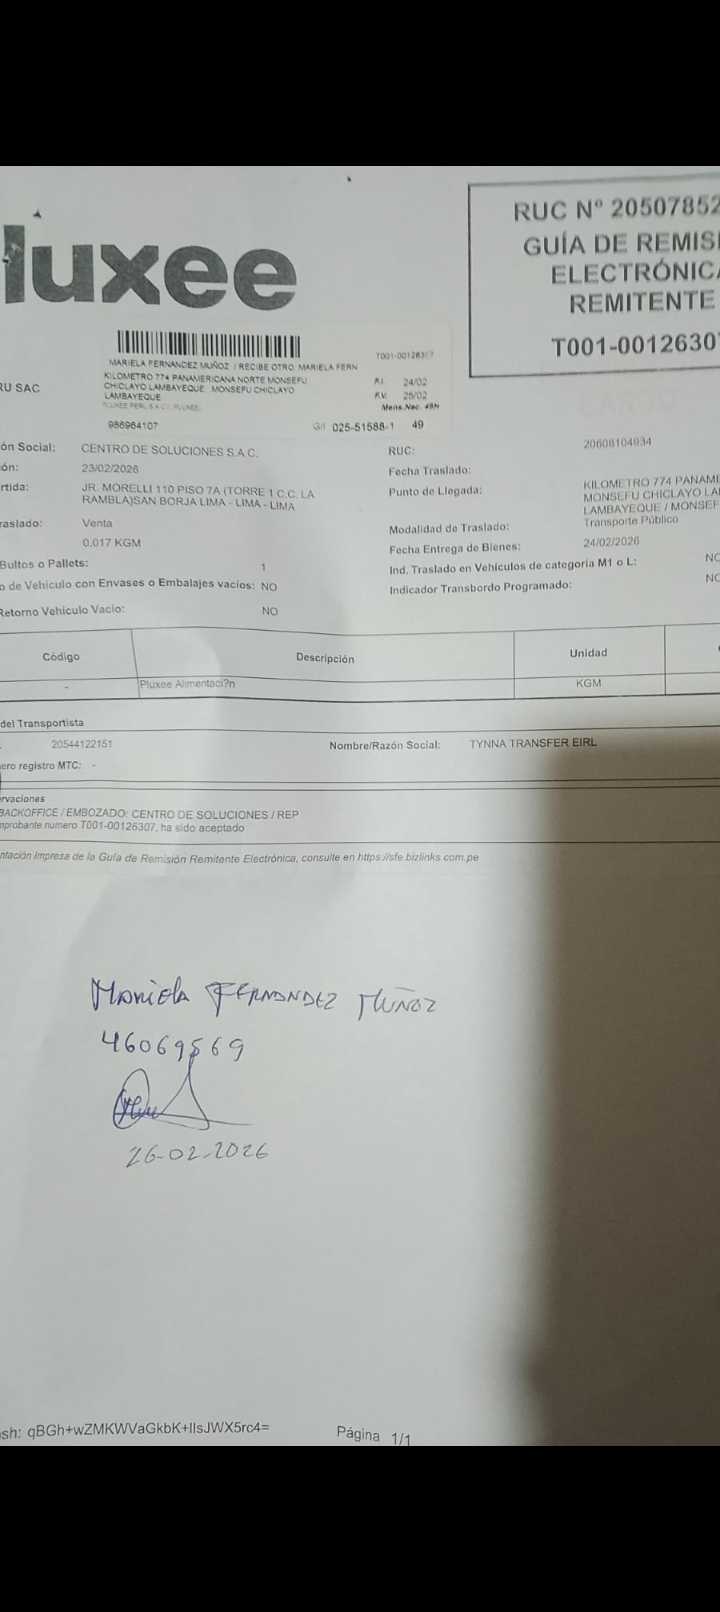 luxee
RUC Nº 20507852
GUÍA DE REMIS
ELECTRÓNICA
REMITENTE
T001-00126307
MARIELA FERNANDEZ MUÑOZ / RECIBE OTRO: MARIELA FERN
T001-00126307
KILOMETRO 774 PANAMERICANA NORTE MONSEFU
CHICLAYO LAMBAYEQUE MONSEFU CHICLAYO
LAMBAYEQUE
F.I. 24/02
F.V. 25/02
Mens.Nac. 48H
986964107
G/I 025-51588-1 49
RU SAC
ón Social: CENTRO DE SOLUCIONES S.A.C.
RUC: 20608104934
ón: 23/02/2026
Fecha Traslado:
rtida: JR. MORELLI 110 PISO 7A (TORRE 1 C.C. LA
RAMBLA)SAN BORJA LIMA - LIMA - LIMA
Punto de Llegada: KILOMETRO 774 PANAME
MONSEFU CHICLAYO LA
LAMBAYEQUE / MONSEF
raslado: Venta
Modalidad de Traslado: Transporte Público
0.017 KGM
Fecha Entrega de Bienes: 24/02/2026
Bultos o Pallets: 1
Ind. Traslado en Vehículos de categoría M1 o L: NO
o de Vehículo con Envases o Embalajes vacíos: NO
Indicador Transbordo Programado: NO
Retorno Vehículo Vacio: NO
Código Descripción Unidad
- Pluxee Alimentaci?n KGM
del Transportista
20544122151
Nombre/Razón Social: TYNNA TRANSFER EIRL
ero registro MTC: -
rvaciones
BACKOFFICE / EMBOZADO: CENTRO DE SOLUCIONES / REP
mprobante numero T001-00126307, ha sido aceptado
ntación Impresa de la Guía de Remisión Remitente Electrónica, consulte en https://sfe.bizlinks.com.pe
Mariela FERNANDEZ MUÑOZ
46069569
26-02-2026
sh: qBGh+wZMKWVaGkbK+IIsJWX5rc4=
Página 1/1